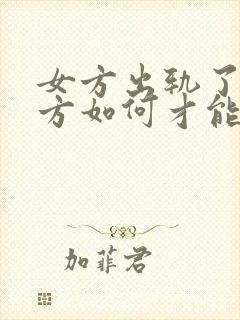 女方出轨了
方如何才能
加菲君